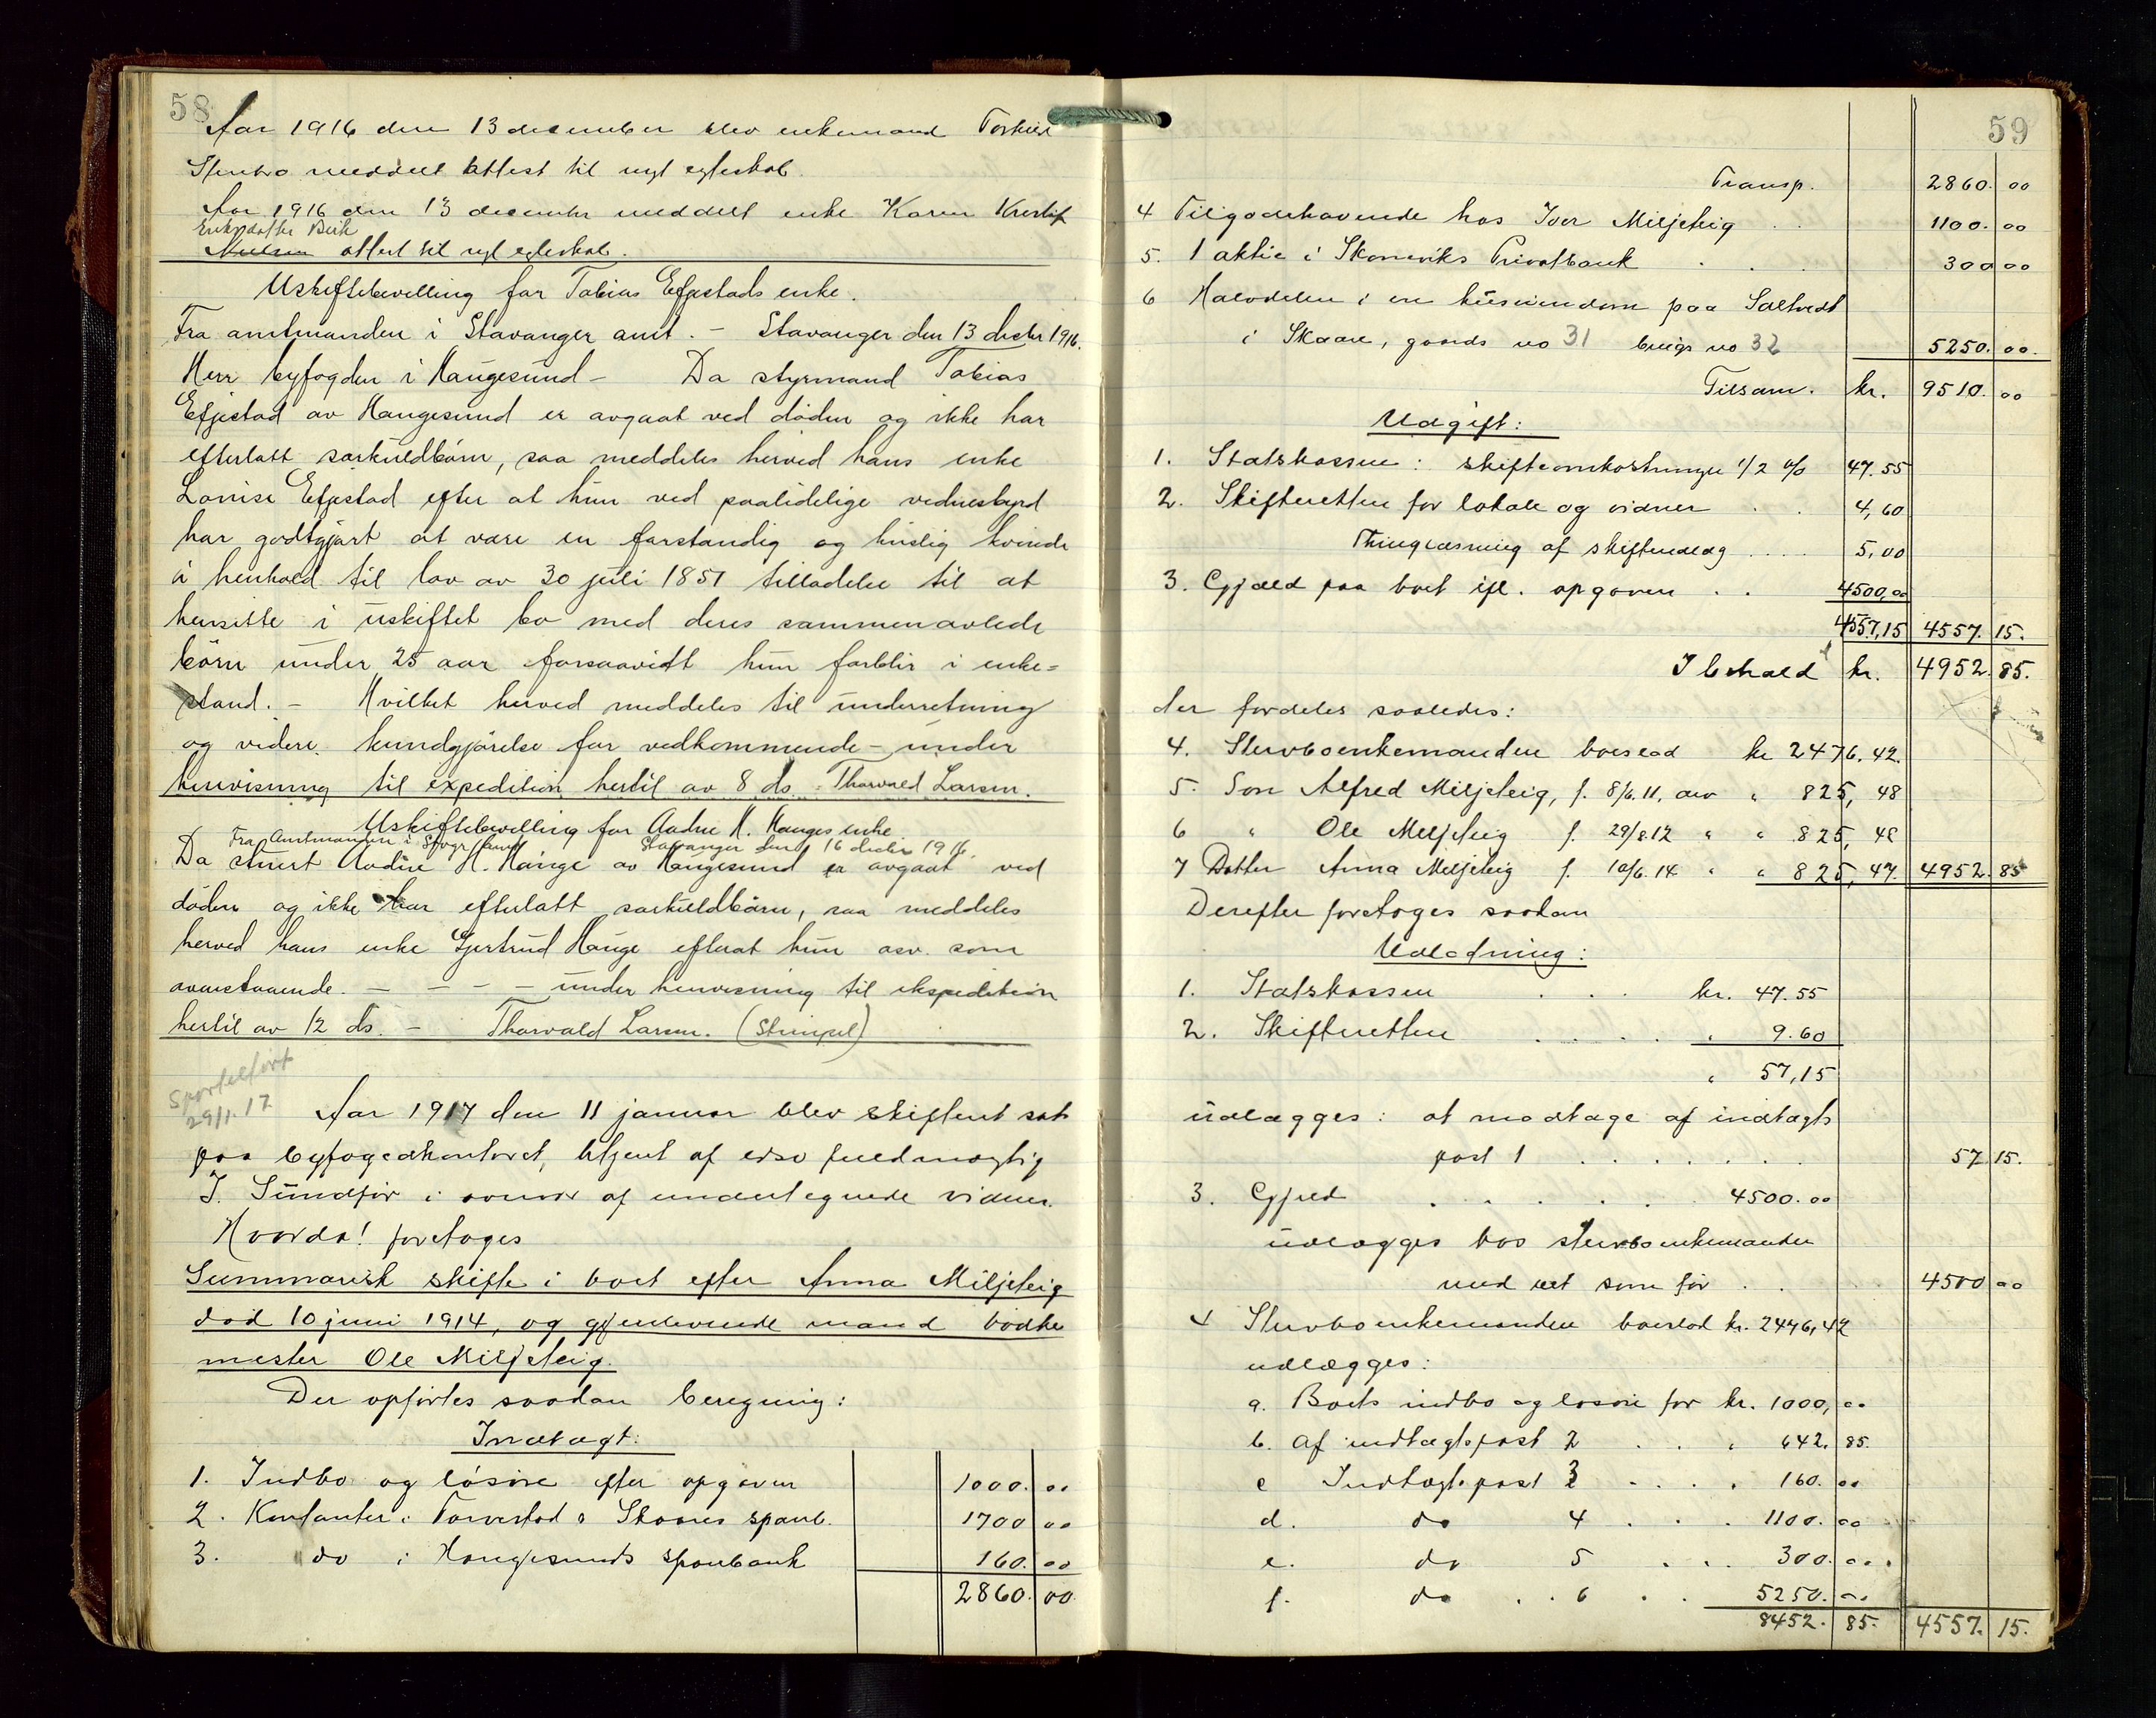 58
Aar 1916 den 13 december blev enkemand Torkild
Stenbro meddelt attest til nyt egteskab.
Aar 1916 den 13 december meddelt enke Karen Kristof
Eriksdatter Birk
Nielsen attest til nyt egteskab.
Uskiftebevilling for Tobias Efjestads enke.
Fra amtmanden i Stavanger amt. – Stavanger den 13 decbr 1916.
Herr byfogden i Haugesund – Da styrmand Tobias
Efjestad av Haugesund er avgaat ved døden og ikke har
efterlatt særkuldbørn, saa meddeles herved hans enke
Lovise Efjestad efter at hun ved paalidelige vidnesbyrd
har godtgjort at være en forstandig og huslig kvinde
i henhold til lov av 30 juli 1851 tilladelse til at
hensitte i uskiftet bo med deres sammenavlede
børn under 25 aar forsaavidt hun forblir i enke=
stand. – Hvilket herved meddeles til underretning
og videre kundgjørelse for vedkommende – under
henvisning til expedition hertil av 8 ds. Thorvald Larsen.
Uskiftebevilling for Aadne H. Hauges enke
Fra Amtmanden i Stvgr amt Stavanger den 16 decbr 1916.
Da stuert Aadne H. Hauge av Haugesund er avgaat ved
døden og ikke har efterlatt særkuldbørn, saa meddeles
herved hans enke Gjertrud Hauge efterat hun osv. som
ovenstaaende. – – – – under henvisning til ekspedition
hertil av 12 ds. – Thorvald Larsen. (Stempel)
Sportelført
29/1.17
Aar 1917 den 11 januar blev skifteret sat
paa byfogedkontoret, betjent af edsv fuldmægtig
J. Sundfør i overvær af undertegnede vidner.
Hvorda! foretoges
Summarisk skifte i boet efter Anna Miljeteig
død 10 juni 1914, og gjenlevende mand bødker
mester Ole Miljeteig.
Der opførtes saadan beregning:
Indtægt:
1. Indbo og løsøre efter opgaven 1000. 00
2. Kontanter i Torvestad & Skaares sparb. 1700 00
3. do i Haugesunds sparebank 160. 00
2860. 00
59
Transp. 2860. 00
4 Tilgodehavende hos Iver Miljeteig . . 1100. 00
5. 1 aktie i Skaneviks Privatbank . . . 300 00
6 Halvdelen i en huseiendom paa Saltvedt
i Skaare, gaards no 31 brugs no 32 5250. 00.
Tilsam. kr. 9510. 00
Udgift:
1. Statskassen: skifteomkostninger 1/2 % 47.55
2. Skifteretten for lokale og vidner . . 4,60
Thinglæsning af skifteudlæg .... 5,00
3. Gjæld paa boet ifl. opgaven . . 4500,00
4557,15 4557. 15.
I behold kr. 4952. 85.
der fordeles saaledes:
4. Stervboenkemanden boeslod kr 2476. 42.
5. Søn Alfred Miljeteig, f. 8/6.11, arv " 825, 48
6 " Ole Miljeteig f. 29/8.12 " " 825, 48
7 Datter Anna Miljeteig f. 10/6.14 " " 825, 47 4952. 85
Derefter foretoges saadan
Udlodning:
1. Statskassen . . . kr. 47.55
2. Skifteretten . . . . . " 9.60
" 57,15
udlægges: at modtage af indtægts
post 1 . . . . . . 57 15.
3. Gjæld . . . . . 4500.00
udlægges hos stervboenkemanden
med ret som før . . . 4500 00
4 Stervboenkemanden boeslod kr. 2476,42
udlægges:
a. Boets indbo og løsøre for kr. 1000, 00
b. af indtægtspost 2 . . . " 642. 85.
c Indtægtspost 3 . . . . 160. 00
d. do 4 . . . 1100. 00
e. do 5 . . . 300. 00.
f. do . . 6 . . 5250. 00
8452. 85. 4557. 15.